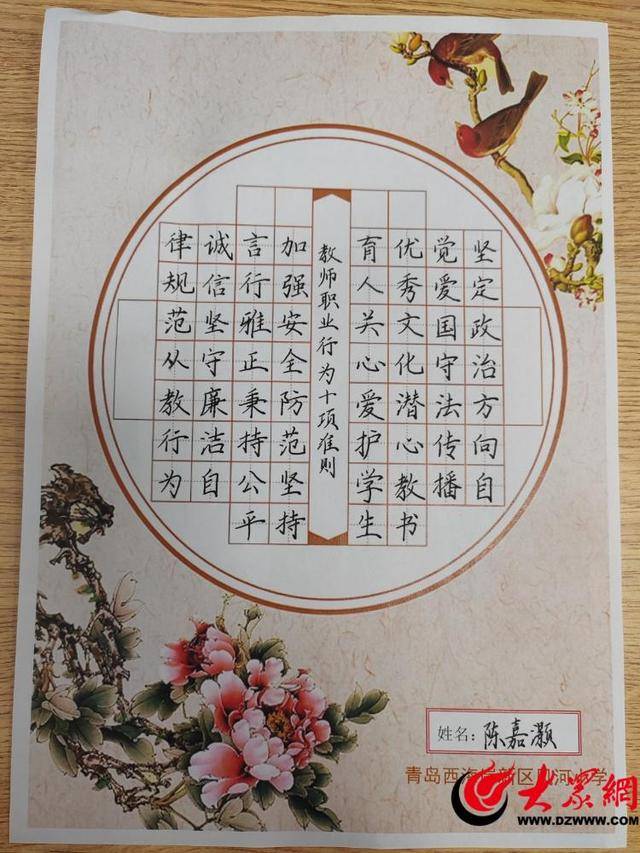 坚定政治方向自
觉爱国守法传播
优秀文化潜心教书
育人关心爱护学生
教师职业行为十项准则
加强安全防范坚持
言行雅正秉持公平
诚信坚守廉洁自
律规范从教行为
姓名：陈嘉灏
青岛西海岸新区
小学
大众網
WWW.DZWWW.COM